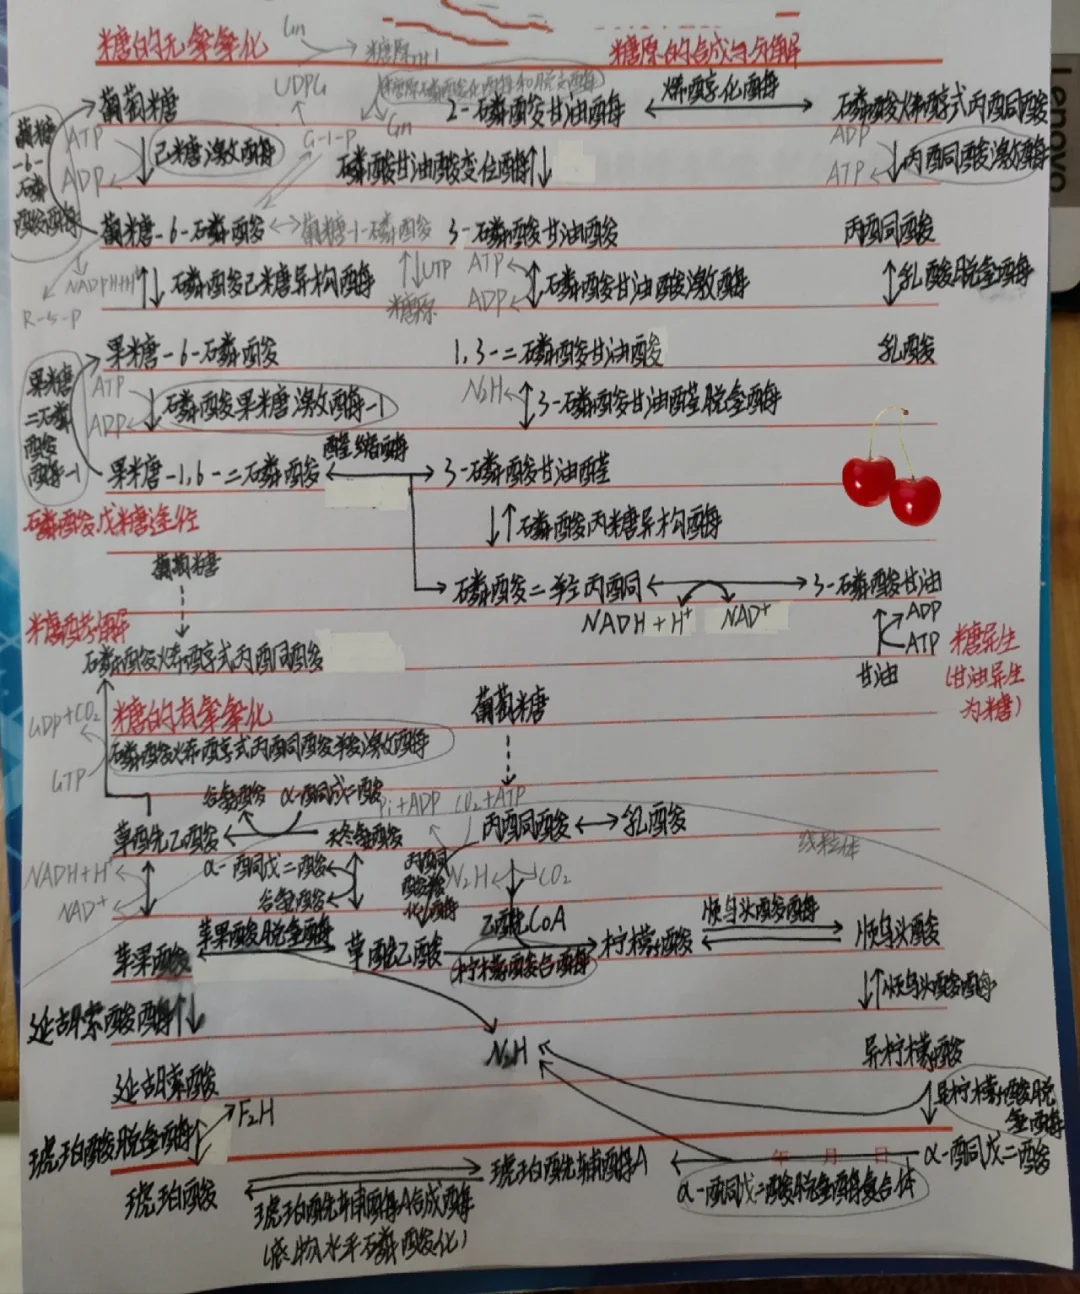 Gn
糖的无氧氧化
糖原n+1
糖原的合成与分解
UDPG
糖原磷酸化酶和脱支酶
葡萄糖
2-磷酸甘油酸
烯醇化酶
磷酸烯醇式丙酮酸
葡糖
-6-
磷
酸酶
ATP
己糖激酶
ADP
G-1-P
Gn
磷酸甘油酸变位酶
ADP
丙酮酸激酶
ATP
葡糖-6-磷酸
葡糖-1-磷酸
3-磷酸甘油酸
丙酮酸
NADPH+H⁺
R-5-P
磷酸己糖异构酶
UTP
糖原
ATP
ADP
磷酸甘油酸激酶
乳酸脱氢酶
果糖-6-磷酸
1,3-二磷酸甘油酸
乳酸
果糖
二磷
酸酶-1
ATP
ADP
磷酸果糖激酶-1
N2H
3-磷酸甘油醛脱氢酶
果糖-1,6-二磷酸
醛缩酶
3-磷酸甘油醛
磷酸戊糖途径
磷酸丙糖异构酶
葡萄糖
磷酸二羟丙酮
3-磷酸甘油
糖酵解
NADH+H⁺
NAD⁺
ADP
ATP
糖异生
(甘油异生
为糖)
磷酸烯醇式丙酮酸
甘油
GDP+CO₂
糖的有氧氧化
葡萄糖
磷酸烯醇式丙酮酸羧激酶
GTP
谷氨酸
α-酮戊二酸
Pi+ADP
CO₂+ATP
草酰乙酸
天冬氨酸
丙酮酸
乳酸
线粒体
NADH+H⁺
NAD⁺
α-酮戊二酸
谷氨酸
丙酮
酸羧
化酶
N2H
CO₂
乙酰CoA
顺乌头酸酶
苹果酸
苹果酸脱氢酶
草酰乙酸
柠檬酸合酶
柠檬酸
顺乌头酸
延胡索酸酶
顺乌头酸酶
N2H
异柠檬酸
延胡索酸
异柠檬酸脱
氢酶
琥珀酸脱氢酶
F2H
年 月 日
琥珀酸
琥珀酰辅酶A
α-酮戊二酸
琥珀酰辅酶A合成酶
α-酮戊二酸脱氢酶复合体
(底物水平磷酸化)
Lenovo